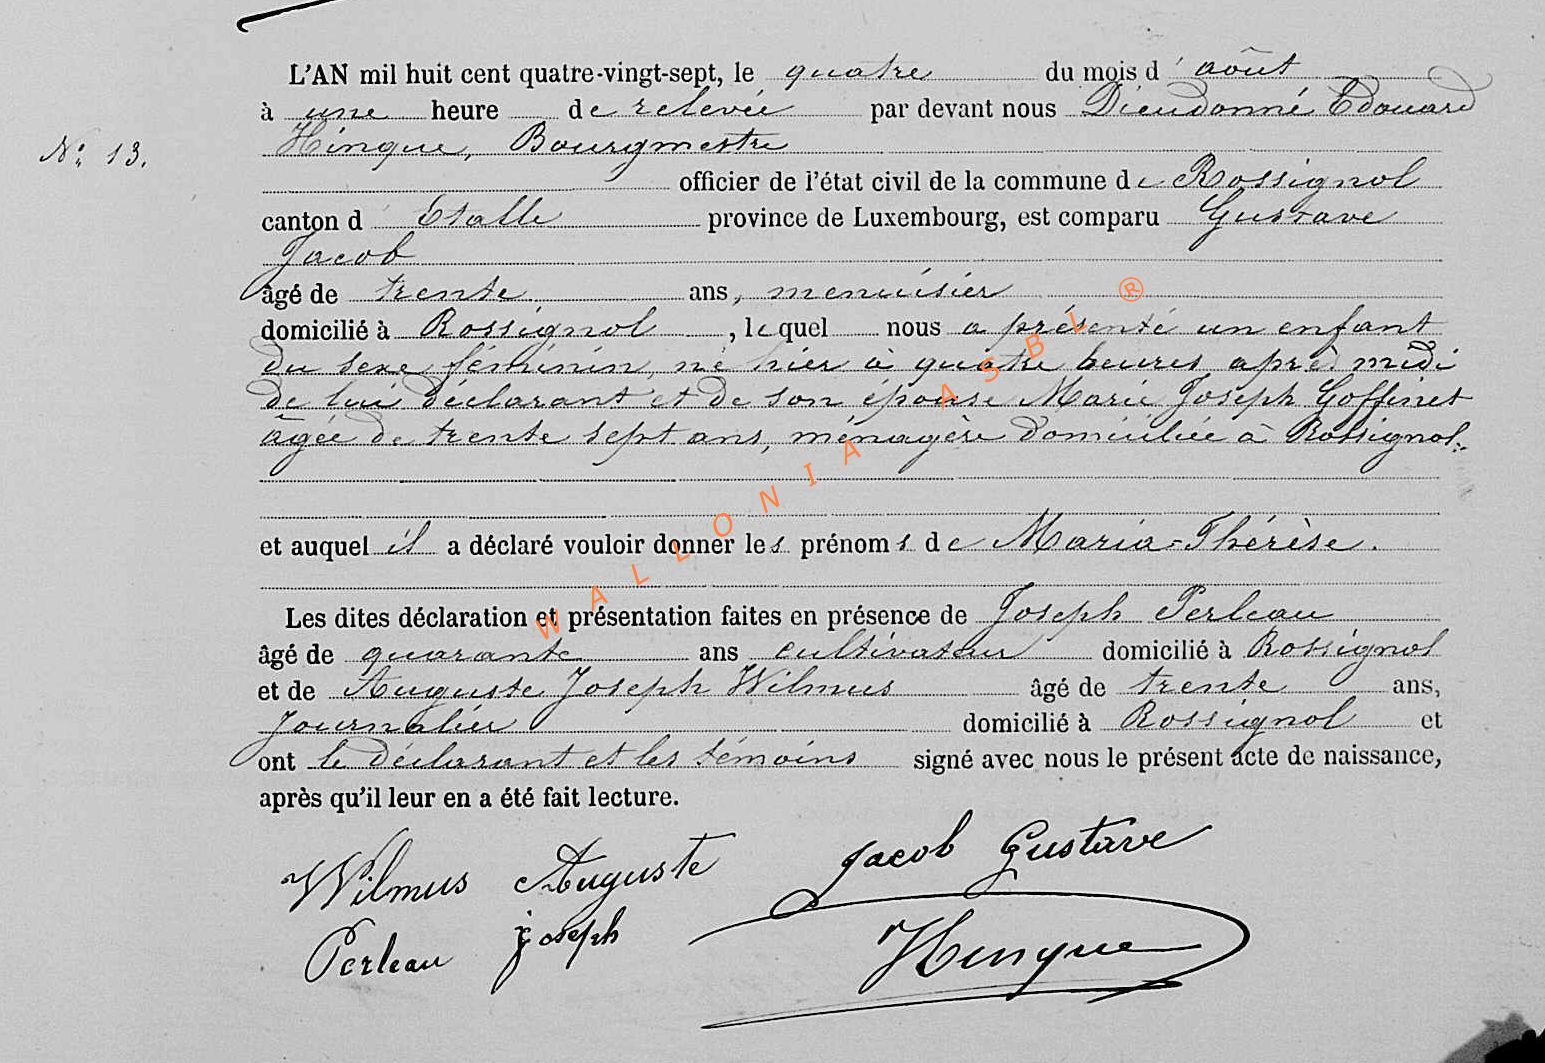 L'AN mil huit cent quatre-vingt-sept, le quatre du mois d' août
à une heure de relevée par devant nous Dieudonné Edouard
Nº 13.
Hinque, Bourgmestre
officier de l'état civil de la commune de Rossignol
canton d' Etalle province de Luxembourg, est comparu Gustave
Jacob
âgé de trente ans, menuisier
domicilié à Rossignol, lequel nous a présenté un enfant
du sexe féminin, né hier à quatre heures après midi
de lui déclarant et de son épouse Marie Joseph Goffinet
âgée de trente sept ans, ménagère domiciliée à Rossignol.
et auquel il a déclaré vouloir donner les prénoms de Maria-Thérèse.
Les dites déclaration et présentation faites en présence de Joseph Perleau
âgé de quarante ans cultivateur domicilié à Rossignol
et de Auguste Joseph Wilmus âgé de trente ans,
Journalier domicilié à Rossignol et
ont le déclarant et les témoins signé avec nous le présent acte de naissance,
après qu'il leur en a été fait lecture.
Wilmus Auguste Jacob Gustave
Perleau joseph Hinque
WALLONIA ASBL ®